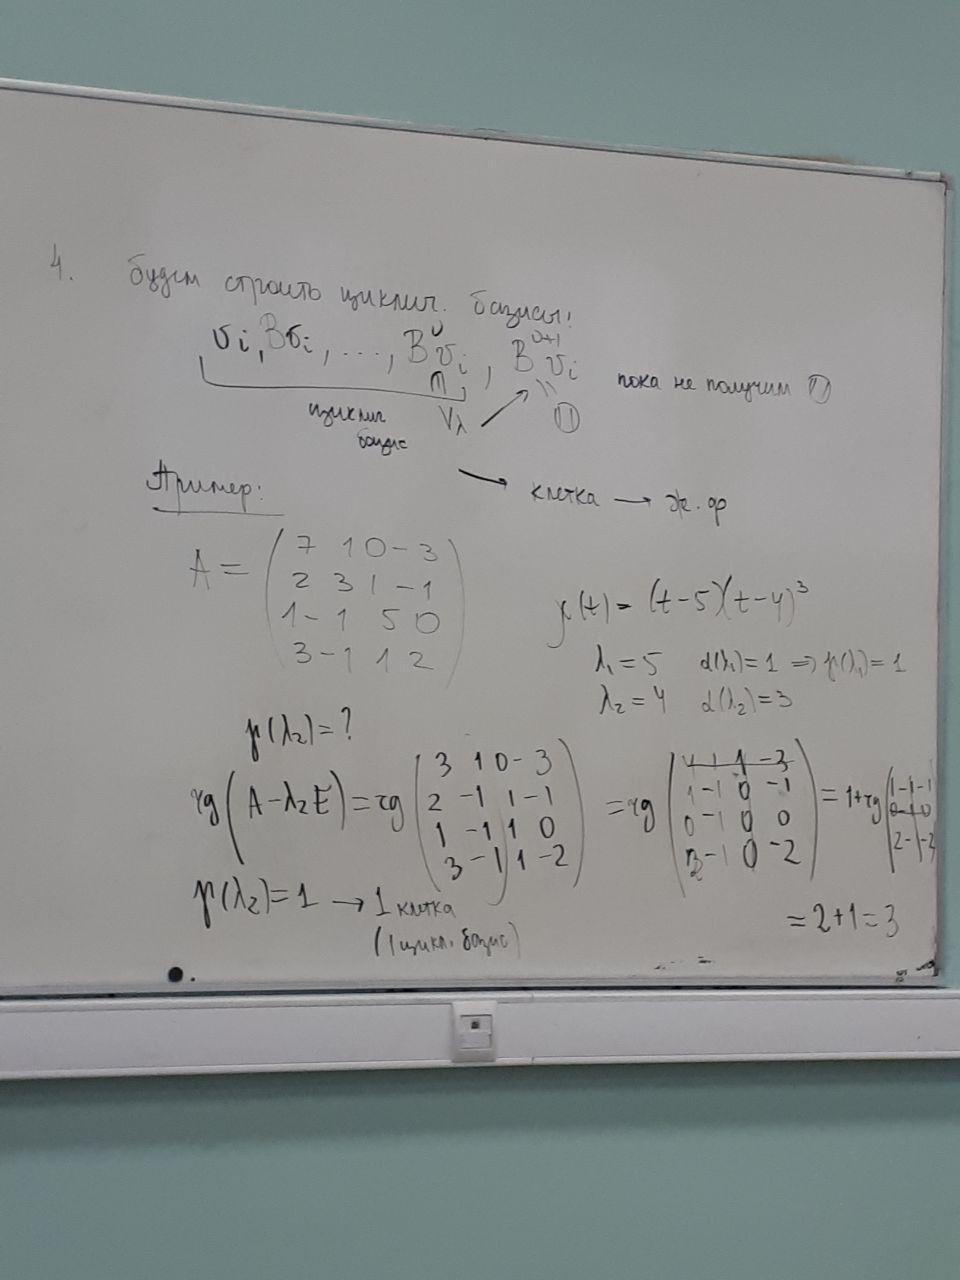 4. будем строить циклич. базисы!
υi, Bυi, ..., B^υ υi, B^υ+1 υi пока не получим 0
циклич базис Vλ 0
→ клетка → ж. ф
Пример:
A = ( 7 1 0 -3
2 3 1 -1
1 -1 5 0
3 -1 1 2 )
χ(t) = (t-5)(t-4)³
λ₁ = 5 d(λ₁) = 1 ⇒ γ(λ₁) = 1
λ₂ = 4 d(λ₂) = 3
γ(λ₂) = ?
rg(A - λ₂E) = rg ( 3 1 0 -3
2 -1 1 -1
1 -1 1 0
3 -1 1 -2 )
= rg ( 1 -3
1 -1 0 -1
0 -1 0 0
-1 0 -2 )
= 1 + rg ( 1 -1 -1
0 -1 0
2 -1 -2 )
= 2+1 = 3
γ(λ₂) = 1 → 1 клетка
(1 цикл. базис)